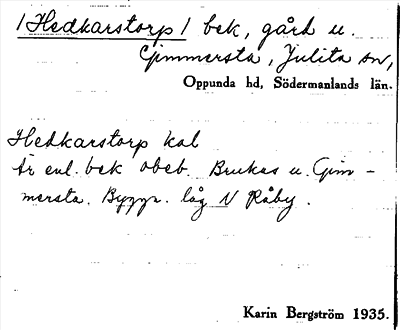 /Hedkarstorp/ bek, gård u.
Gimmersta, Julita sn,
Oppunda hd, Södermanlands län.
Hedkarstorp kal
Är enl. bek obeb. Brukas u. Gim-
mersta. Byggn. låg N Råby.
Karin Bergström 1935.